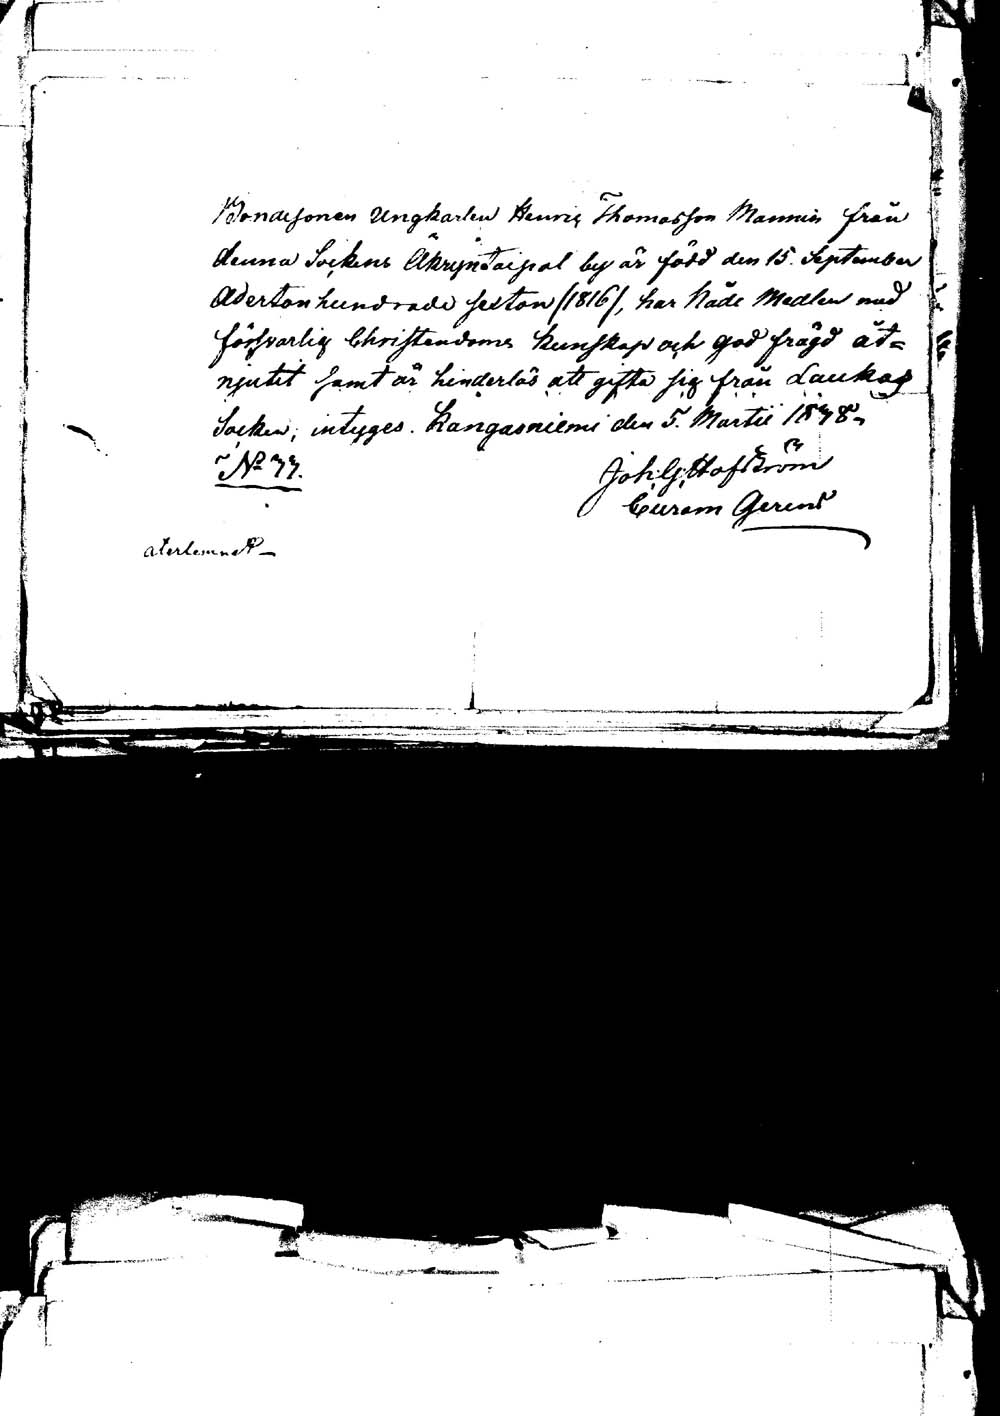 Bondesonen Ungkarlen Henric Thomasson Mannin från
denna Sockens Äkryntaipal by är född den 15. September
Adertonhundrade sexton /1816/, har Nåde Medlen med
försvarlig Christendoms kunskap och god frägd åt=
njutit samt är hinderlös att gifta sig från Laukas
Socken, intyges. Kangasniemi den 5. Martii 1848.
No 77.
Joh. G. Hofström
Curam Gerens
återlemnat